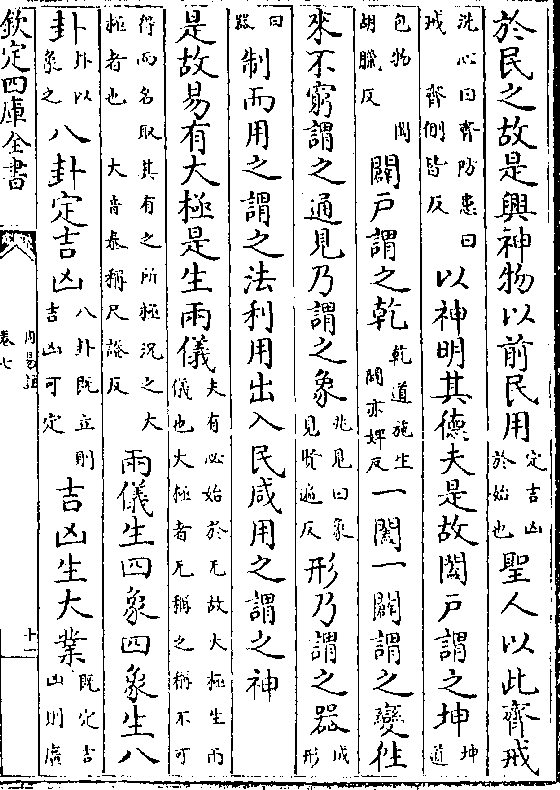 於民之故是興神物以前民用定吉凶於始也聖人以此齊戒
洗心曰齊防患曰戒 齊側皆反以神明其德夫是故闔戶謂之坤坤道
包物 闔胡臘反闢戶謂之乾乾道施生 闢亦婢反一闔一闢謂之變徃
來不窮謂之通見乃謂之象兆見曰象 見賢遍反形乃謂之器成形
曰器制而用之謂之法利用出入民咸用之謂之神
是故易有大極是生兩儀夫有必始於无故大極生兩儀也大極者无稱之稱不可
得而名取其有之所極況之大極者也 大音泰稱尺證反兩儀生四象四象生八
卦卦以象之八卦定吉凶八卦既立則吉凶可定吉凶生大業既定吉凶則廣
欽定四庫全書 周易註 卷七 十一